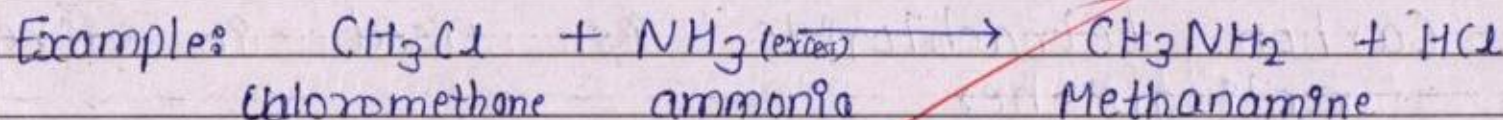 Example: CH₃Cl + NH₃ (excess) ⟶ CH₃NH₂ + HCl
Chloromethane ammonia Methanamine